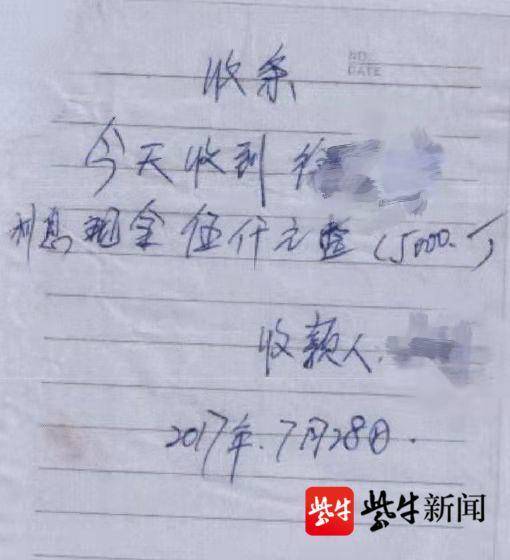 NO.
DATE
收条
今天收到徐
利息现金伍仟元整(5000.-)
收款人.
2017年.7月28日.
紫牛 紫牛新闻